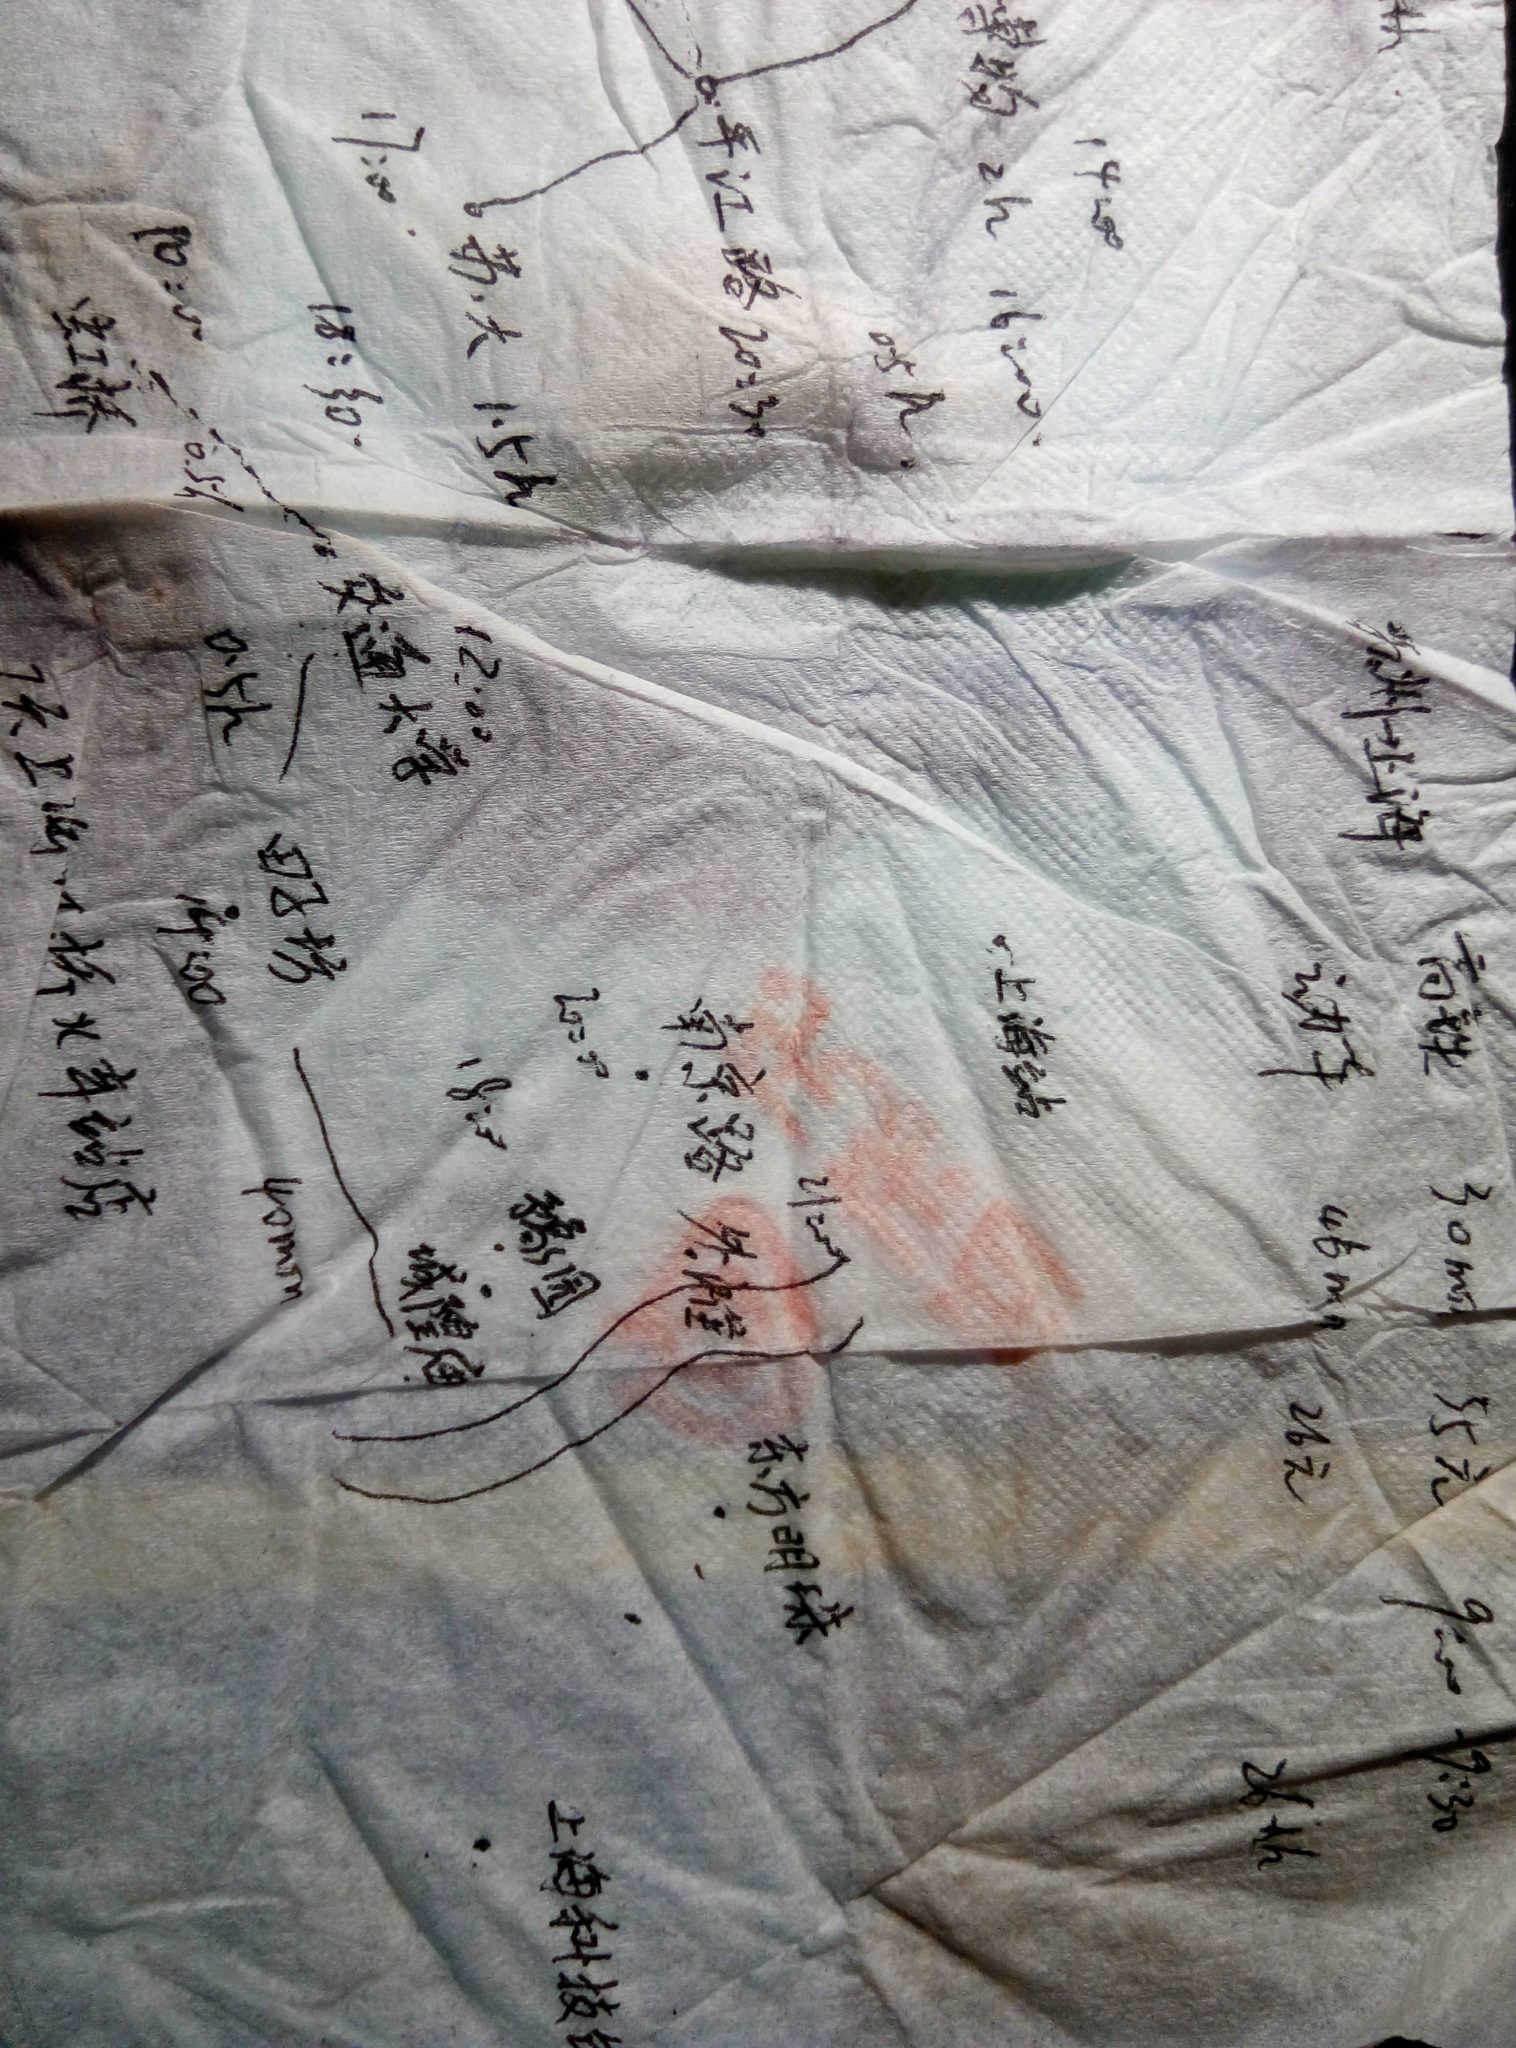 高铁 30min 35元 9:00-9:30
苏州→上海
动车 46min 26元
26th
14:00
2h 16:00
上海站
0.5h
平江路 20:30
21:00
东方明珠
南京路 外滩
苏大 1.5h
20:00
豫园
上海科技
17:00
18:30
12:00
18:00
城隍庙
交通大学
田子坊
40min
10:50
0.5h
0.5h
14:00
虹桥
火车站